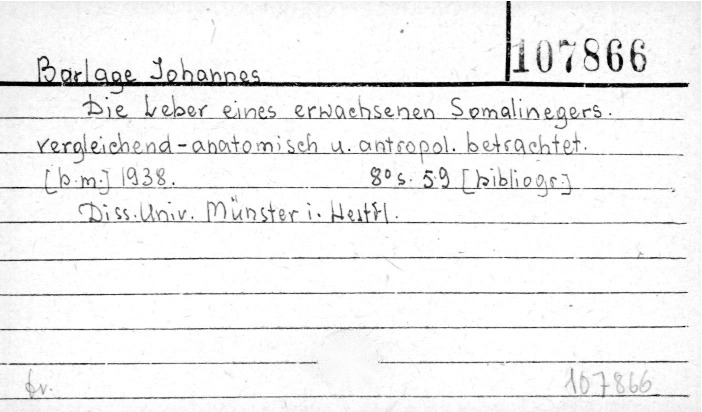 107866
Barlage Johannes
Die Leber eines erwachsenen Somalinegers.
vergleichend-anatomisch u. antropol. betrachtet.
[b.m.] 1938. 8° s. 59 [bibliogr.]
Diss. Univ. Münster i. Westf.
fr. 107866